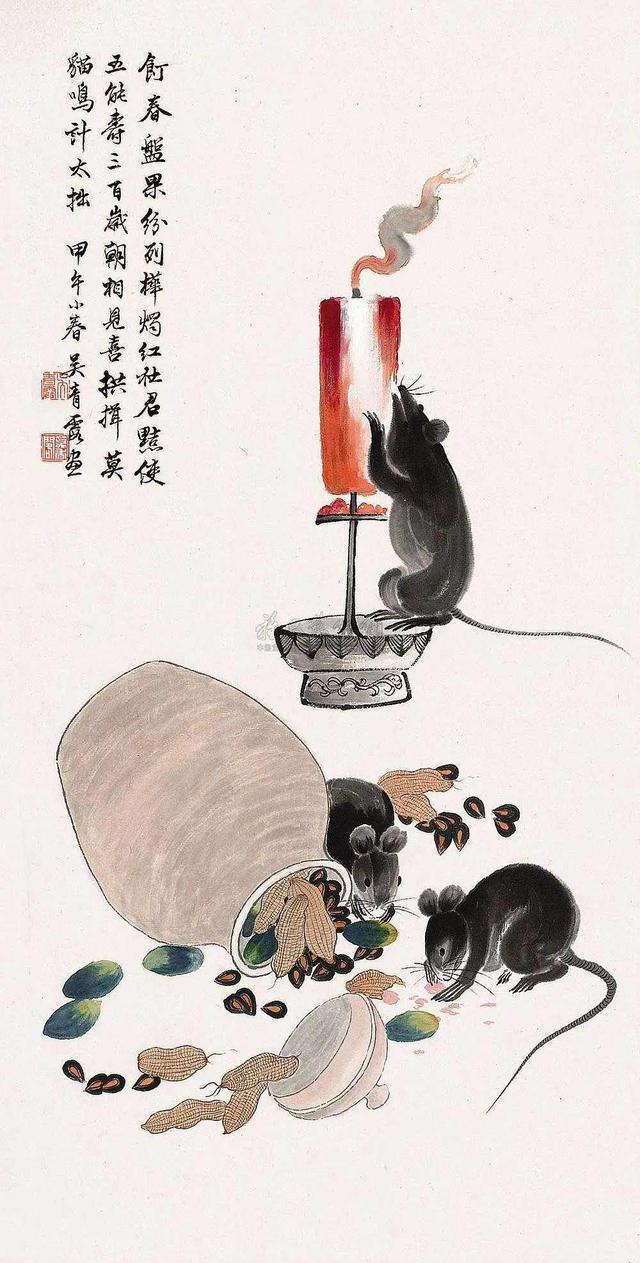 飣春盤果紛列樺燭紅社君黠使
五能壽三百歲朝相見喜拱揖莫
貓鳴計太拙 甲午小春吳青霞畫